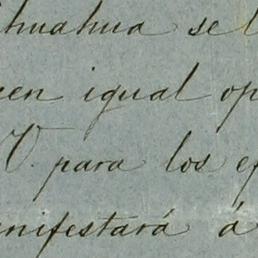 hihuahua se
en igual op
V. para los ef
nifestará á